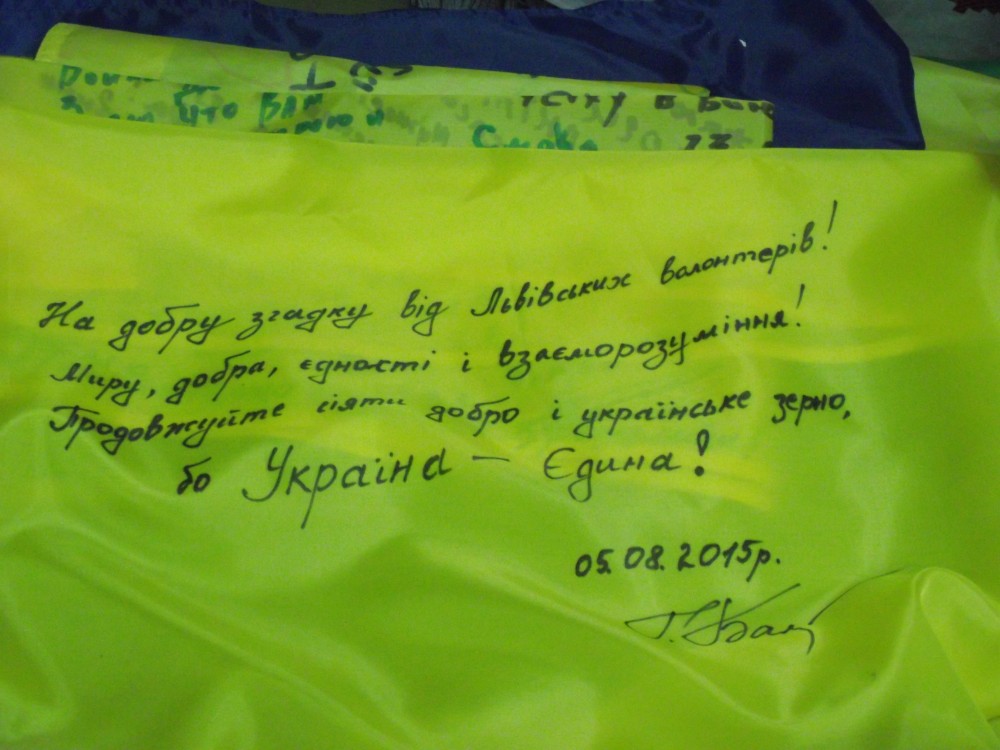 что Вам
На добру згадку від Львівських валонтерів!
Миру, добра, єдності і взаєморозуміння!
Продовжуйте сіяти добро і українське зерно,
бо Україна — Єдина!
05.08.2015р.